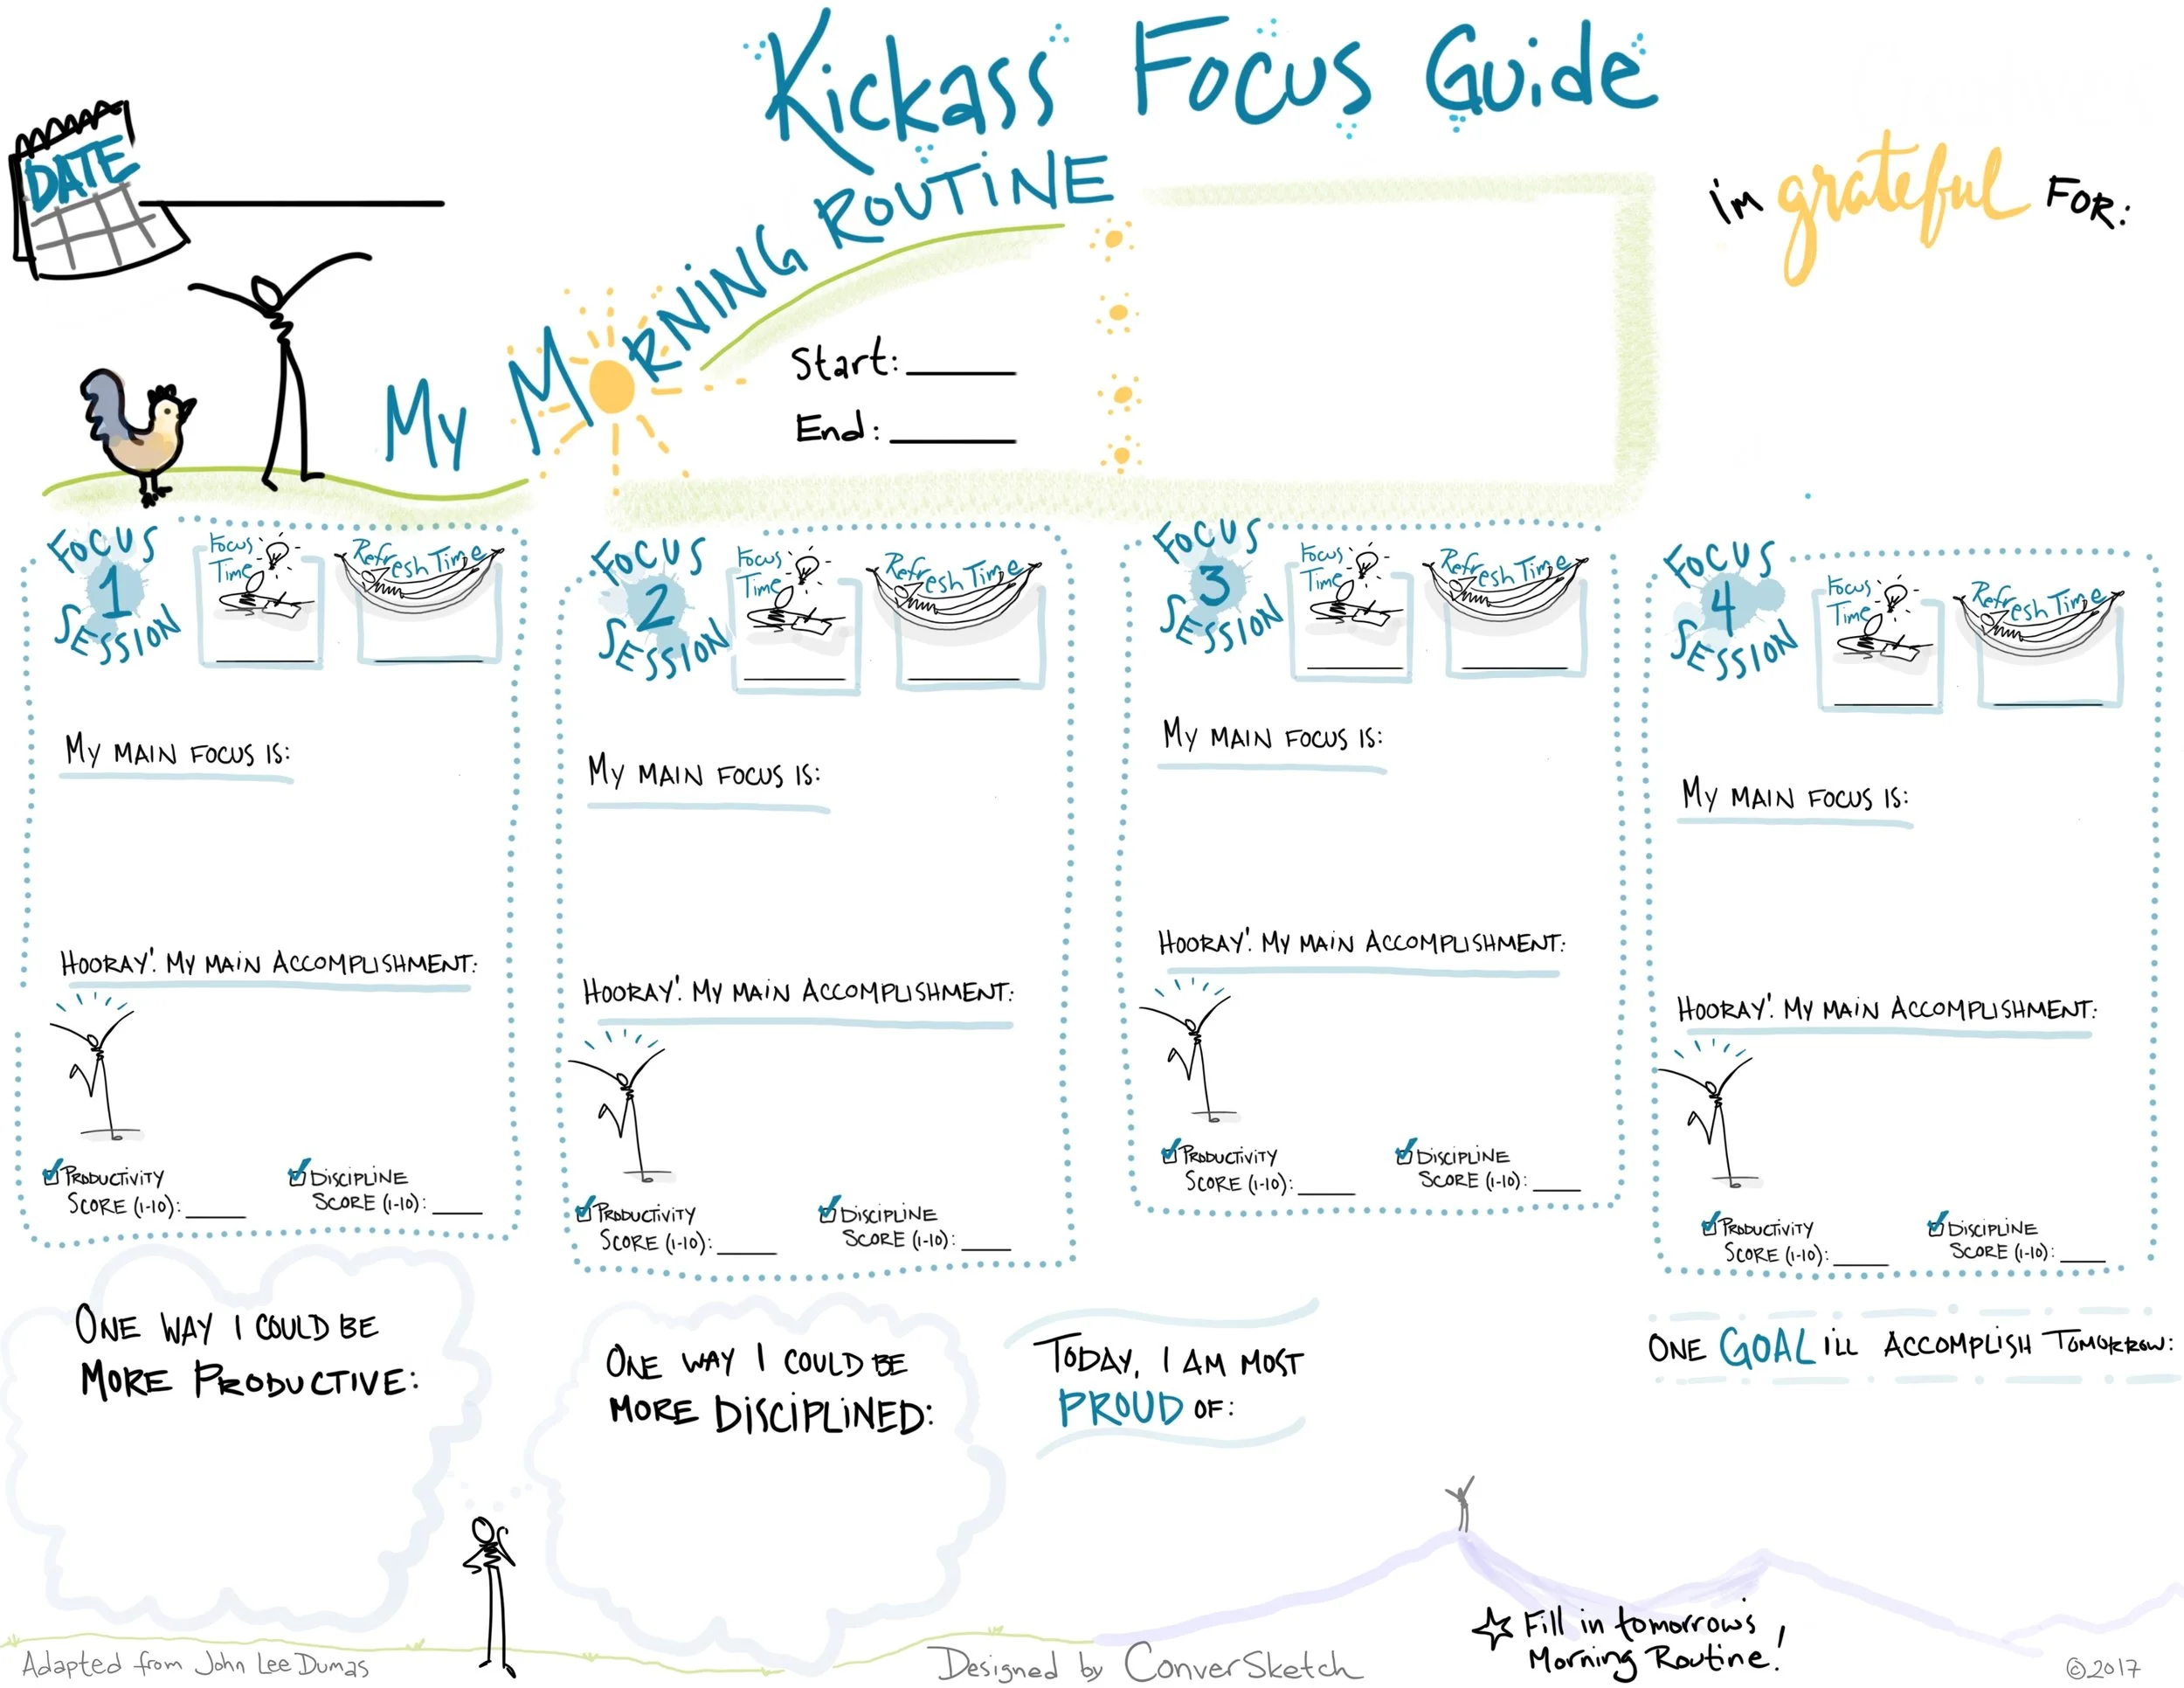 Kickass Focus Guide
DATE
My MORNING ROUTINE
Start:
End:
im grateful FOR:
FOCUS
1
SESSION
Focus
Time
Refresh Time
My MAIN FOCUS IS:
HOORAY! MY MAIN ACCOMPLISHMENT:
PRODUCTIVITY
SCORE (1-10):
DISCIPLINE
SCORE (1-10):
FOCUS
2
SESSION
Focus
Time
Refresh Time
My MAIN FOCUS IS:
HOORAY! MY MAIN ACCOMPLISHMENT:
PRODUCTIVITY
SCORE (1-10):
DISCIPLINE
SCORE (1-10):
FOCUS
3
SESSION
Focus
Time
Refresh Time
My MAIN FOCUS IS:
HOORAY! MY MAIN ACCOMPLISHMENT:
PRODUCTIVITY
SCORE (1-10):
DISCIPLINE
SCORE (1-10):
FOCUS
4
SESSION
Focus
Time
Refresh Time
My MAIN FOCUS IS:
HOORAY! MY MAIN ACCOMPLISHMENT:
PRODUCTIVITY
SCORE (1-10):
DISCIPLINE
SCORE (1-10):
ONE WAY I COULD BE
MORE PRODUCTIVE:
ONE WAY I COULD BE
MORE DISCIPLINED:
TODAY, I AM MOST
PROUD OF:
ONE GOAL ill ACCOMPLISH TOMORROW:
Fill in tomorrow's
Morning Routine!
Adapted from John Lee Dumas
Designed by ConverSketch
©2017